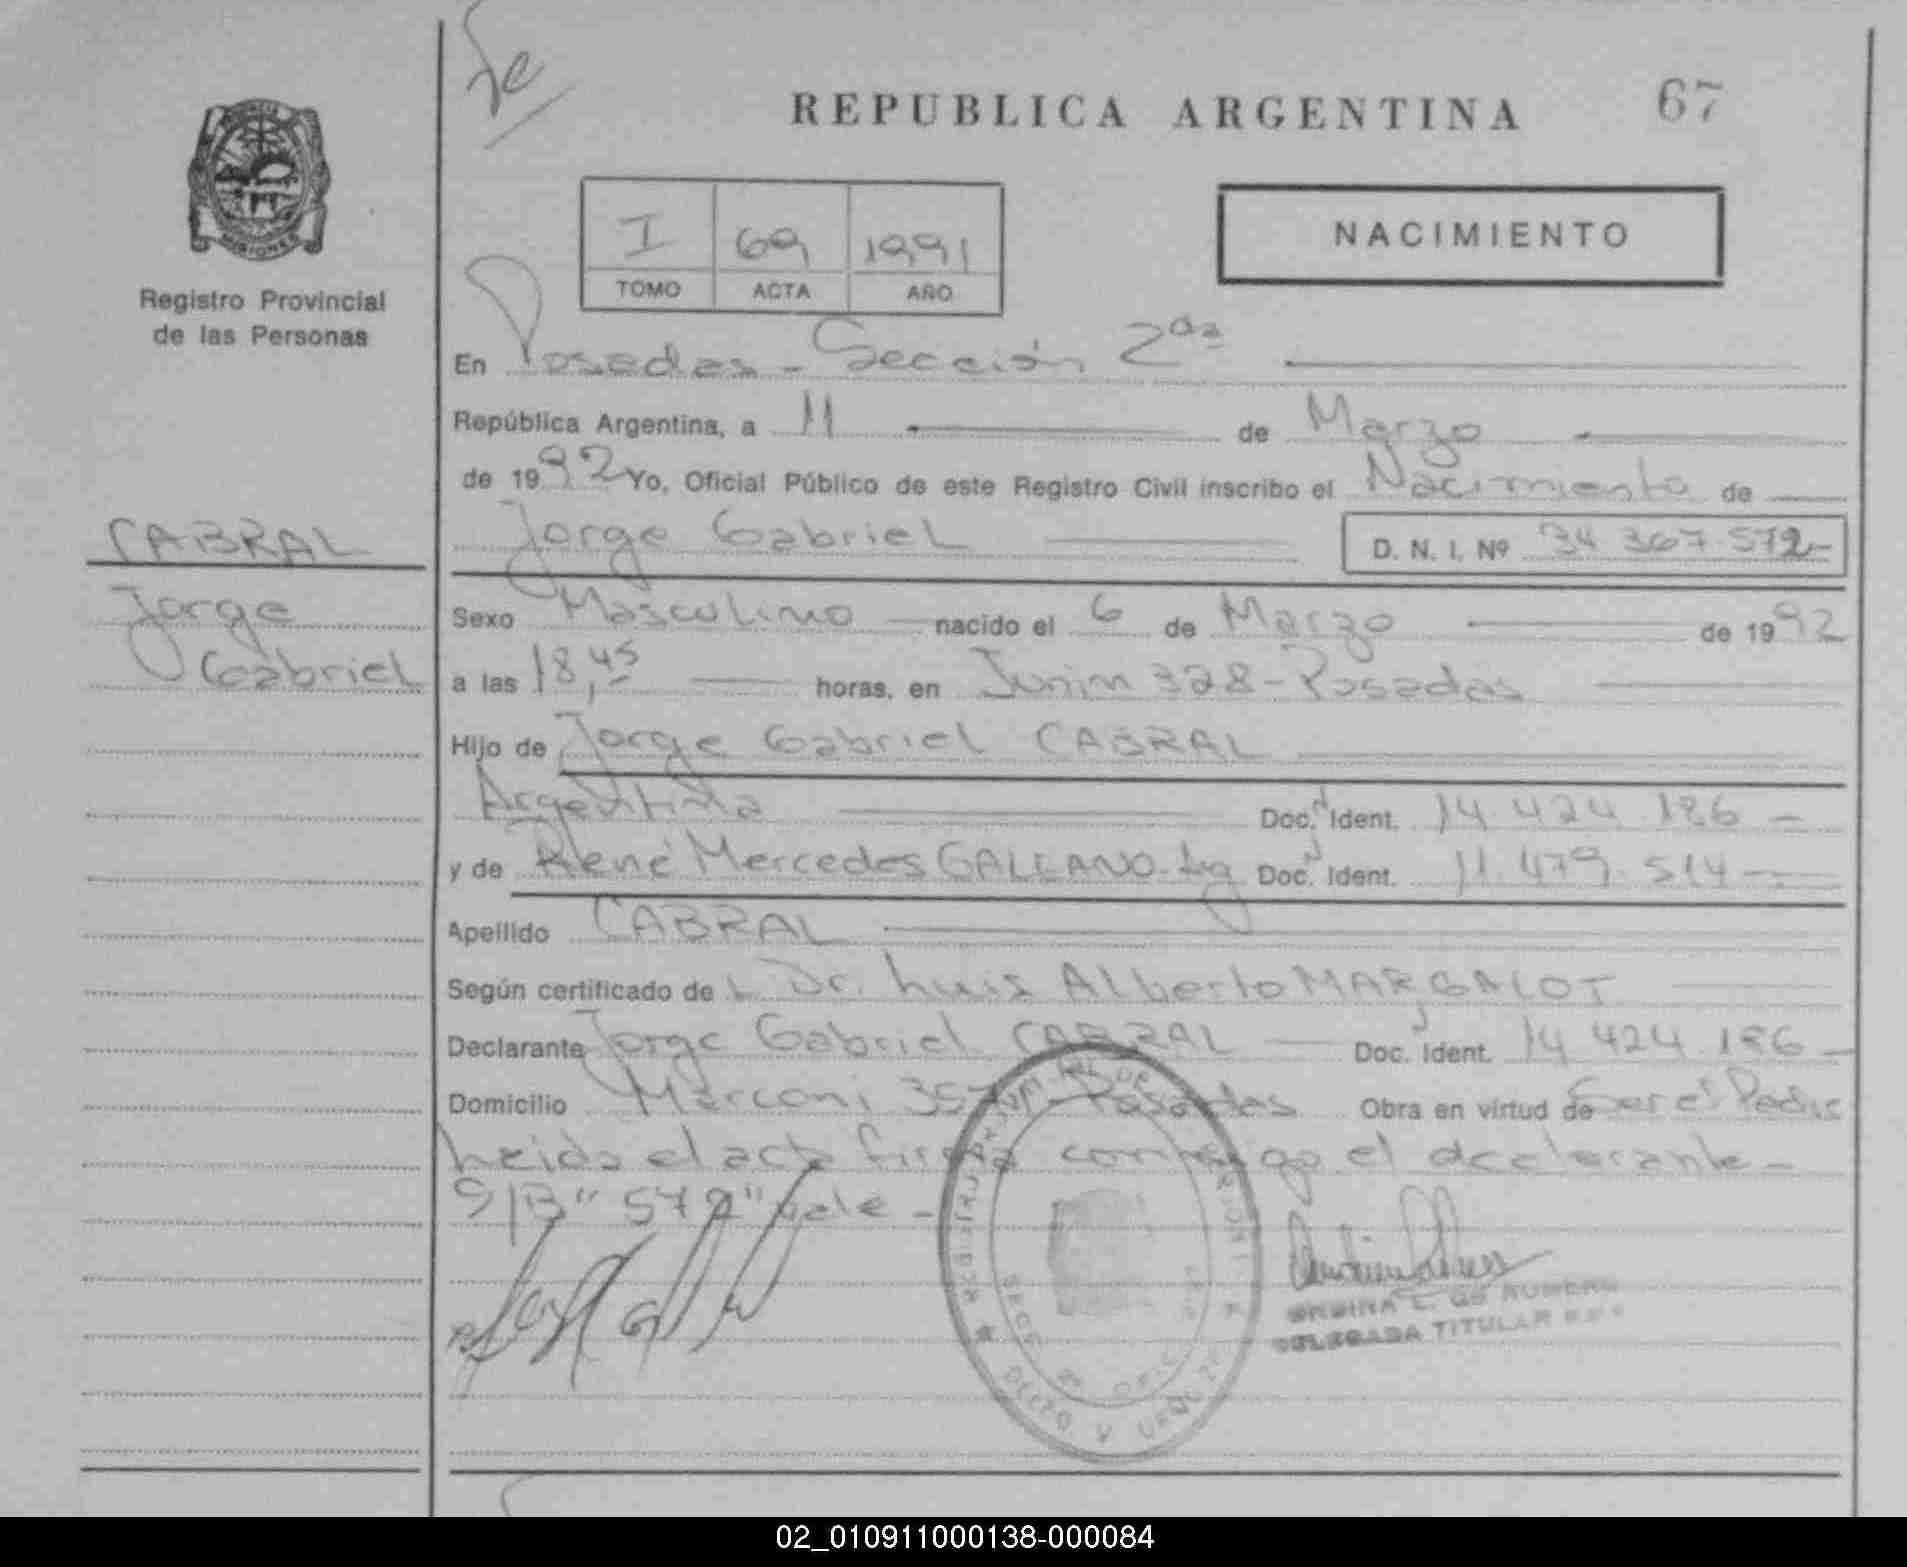 REPUBLICA ARGENTINA 67
Registro Provincial
de las Personas
I 69 1991
TOMO ACTA AÑO
NACIMIENTO
En Posadas - Sección 2da
República Argentina, a 11 de Marzo
de 1992 Yo, Oficial Público de este Registro Civil inscribo el Nacimiento de
Jorge Gabriel D. N. I. Nº 34 367.572
CABRAL
Jorge
Gabriel
Sexo Masculino nacido el 6 de Marzo de 1992
a las 18,45 horas, en Junin 328 - Posadas
Hijo de Jorge Gabriel CABRAL
Argentina Doc. Ident. 14.424.186
y de René Mercedes GALEANO Arg Doc. Ident. 11.479.514
Apellido CABRAL
Según certificado de L Dr. Luis Alberto MARGALOT
Declarante Jorge Gabriel CABRAL Doc. Ident. 14 424.186
Domicilio Marconi Posadas Obra en virtud de Ser el Padre
Leida el acta firma conmigo el declarante -
S/B "572" vale -
DELEGADA TITULAR
02_010911000138-000084